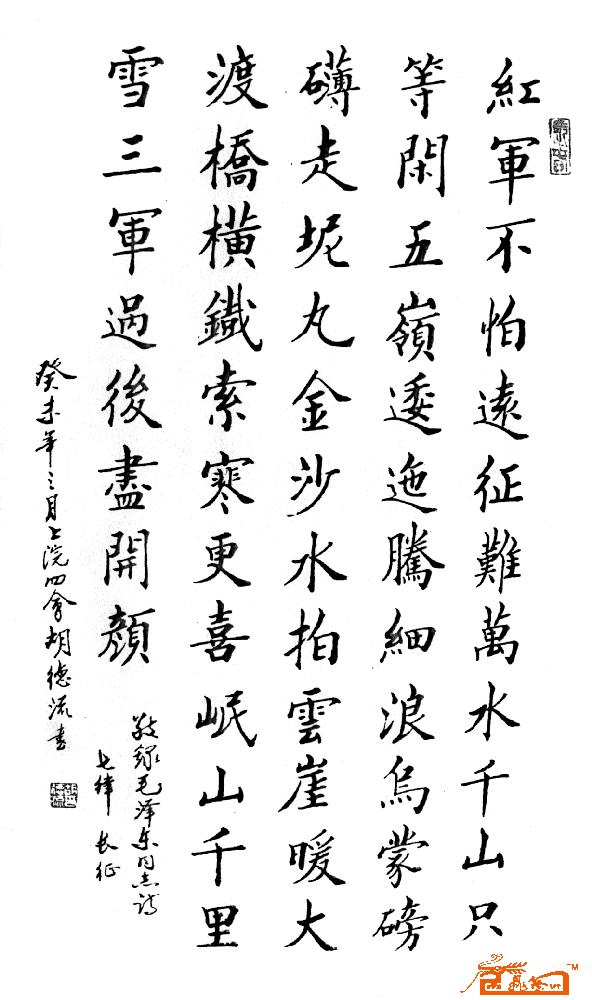 紅軍不怕遠征難萬水千山只
等閑五嶺逶迤騰細浪烏蒙磅
礴走坭丸金沙水拍雲崖暖大
渡橋橫鐵索寒更喜岷山千里
雪三軍過後盡開顔
敬録毛澤东同志詩
七律 长征
癸未年三月上浣四會胡德流書